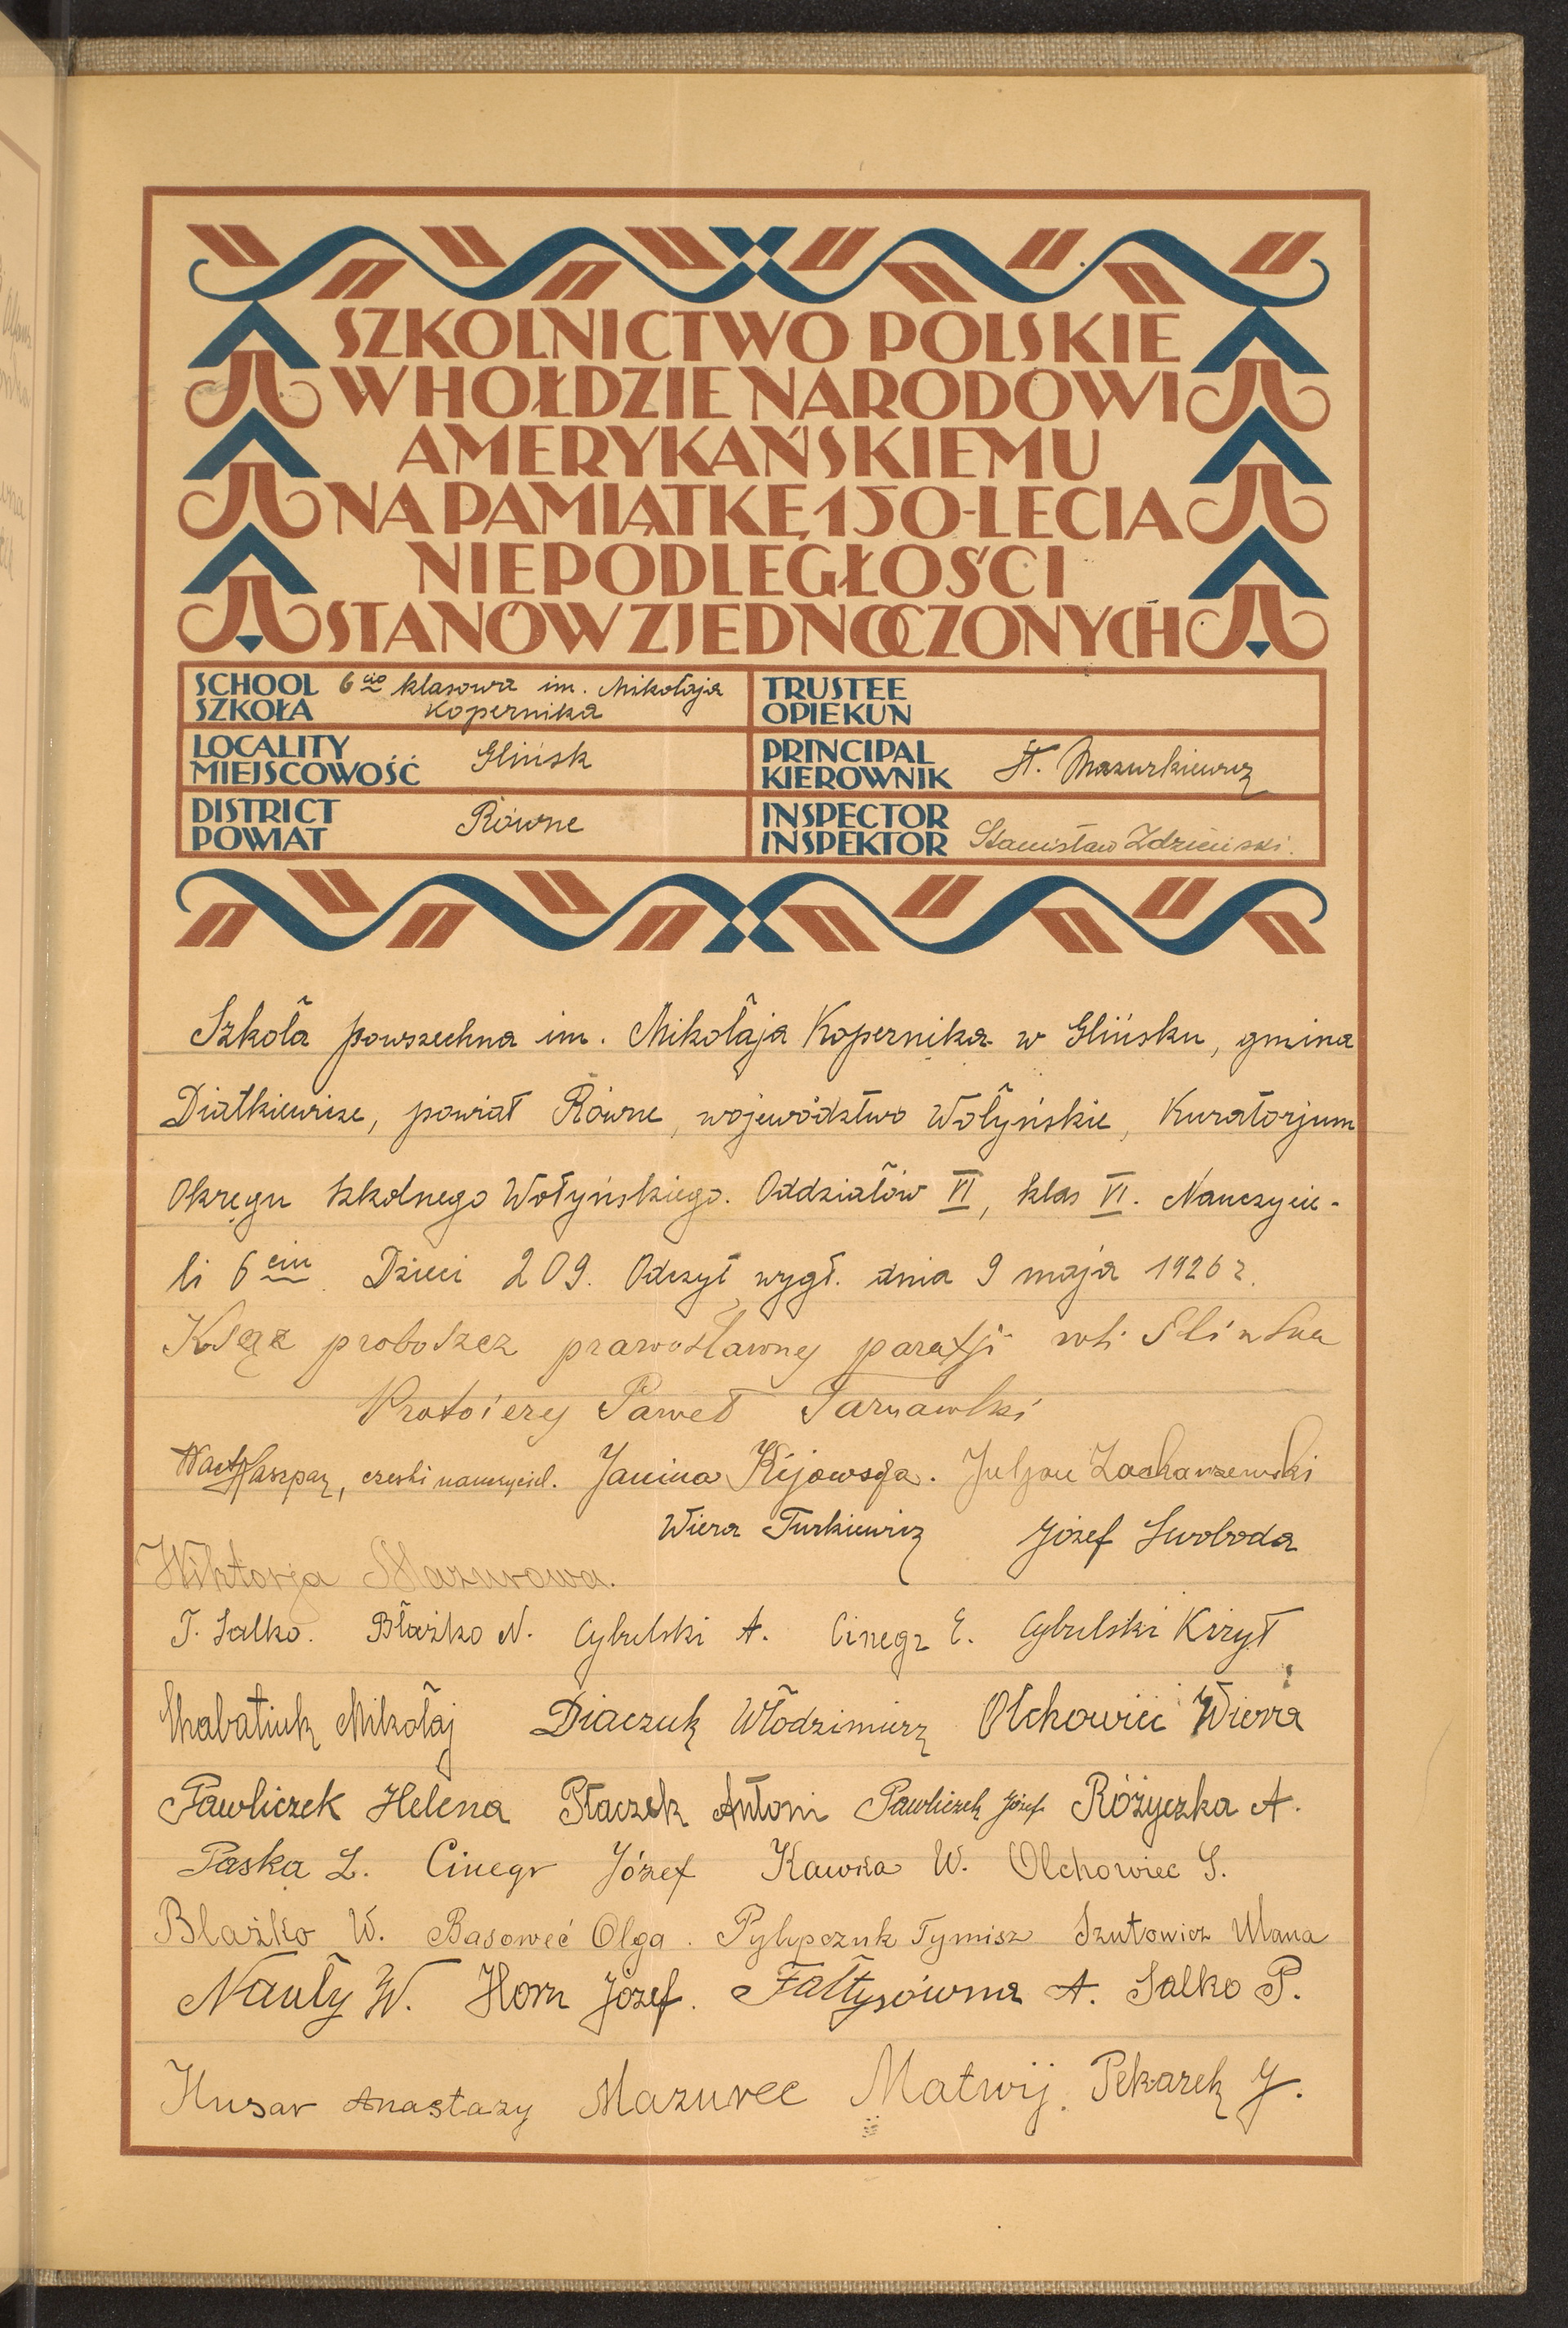 SZKOLNICTWO POLSKIE
W HOŁDZIE NARODOWI
AMERYKAŃSKIEMU
NA PAMIĄTKĘ 150-LECIA
NIEPODLEGŁOŚCI
STANÓW ZJEDNOCZONYCH
SCHOOL SZKOŁA 6cio klasowa im. Mikołaja Kopernika
TRUSTEE OPIEKUN
LOCALITY MIEJSCOWOŚĆ Glińsk
PRINCIPAL KIEROWNIK St. Mazurkiewicz
DISTRICT POWIAT Równe
INSPECTOR INSPEKTOR Stanisław
Szkoła powszechna im. Mikołaja Kopernika w Glińsku, gmina
Diatkiewicze, powiat Równe, województwo Wołyńskie, Kuratorjum
Okręgu Szkolnego Wołyńskiego. Oddziałów VI, klas VI. Nauczycie-
li 6ciu. Dzieci 209. Odczyt wygł. dnia 9 maja 1926 r.
Ksiąz proboszcz prawosławnej parafji wsi Slinska
Protoierej Paweł Tarnawski
Kaszpar, czeski nauczyciel. Janina Kijowska. Juljan Zacharzewski
Wiera Turkiewicz Józef Swoboda
Wiktorja Mazurowa.
T. Salko. Błażko N. Cybulski A. Cinegr E. Cybulski Kirył
Chabatiuk Mikołaj Diaczuk Włodzimierz Olchowiec Wiera
Pawliczek Helena Ptaczek Antoni Pawliczek Józef Różyczka A.
Paska L. Cinegr Józef Kawka W. Olchowiec S.
Blażko W. Basoweć Olga. Pylypczuk Tymisz Szutowicz Ulana
Nauły W. Horn Józef. Fałtysówna A. Salko P.
Husar Anastazy Mazurec Matwij. Pekarek J.